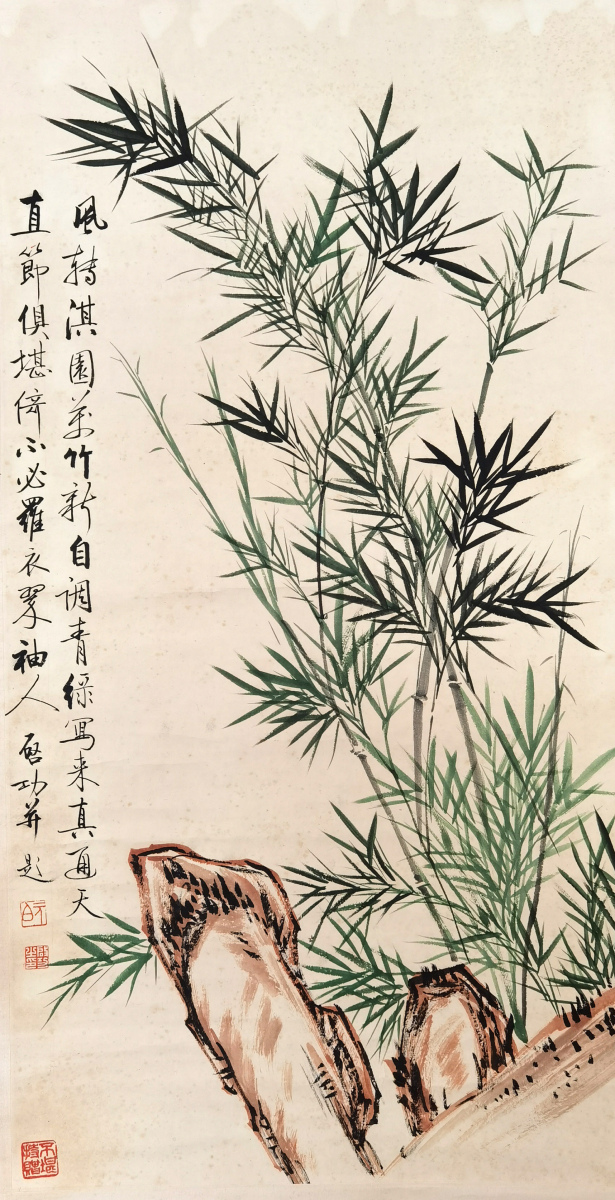 風轉淇園萬竹新自調青綠寫來真通天
直節俱堪倚不必羅衣翠袖人 啓功并題
元白
不堪持贈